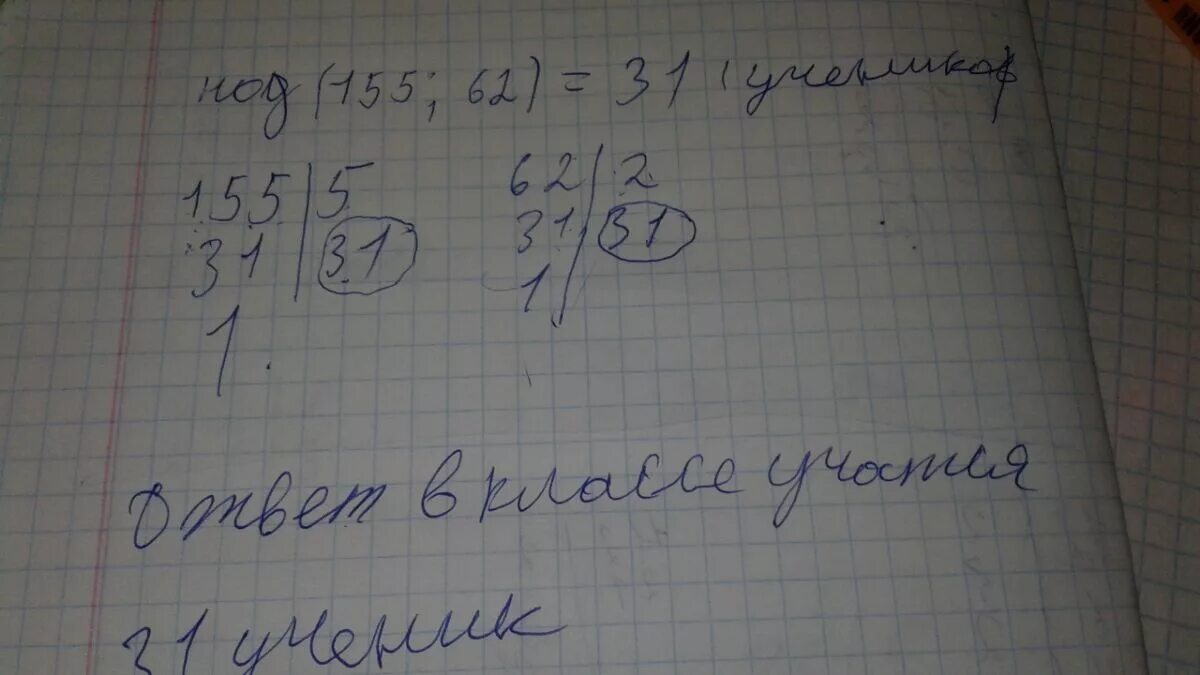 нод (155; 62) = 31 (учеников)
155 | 5
31 | 31
1.
62 | 2
31 | 31
1
Ответ в классе учатся
31 ученик